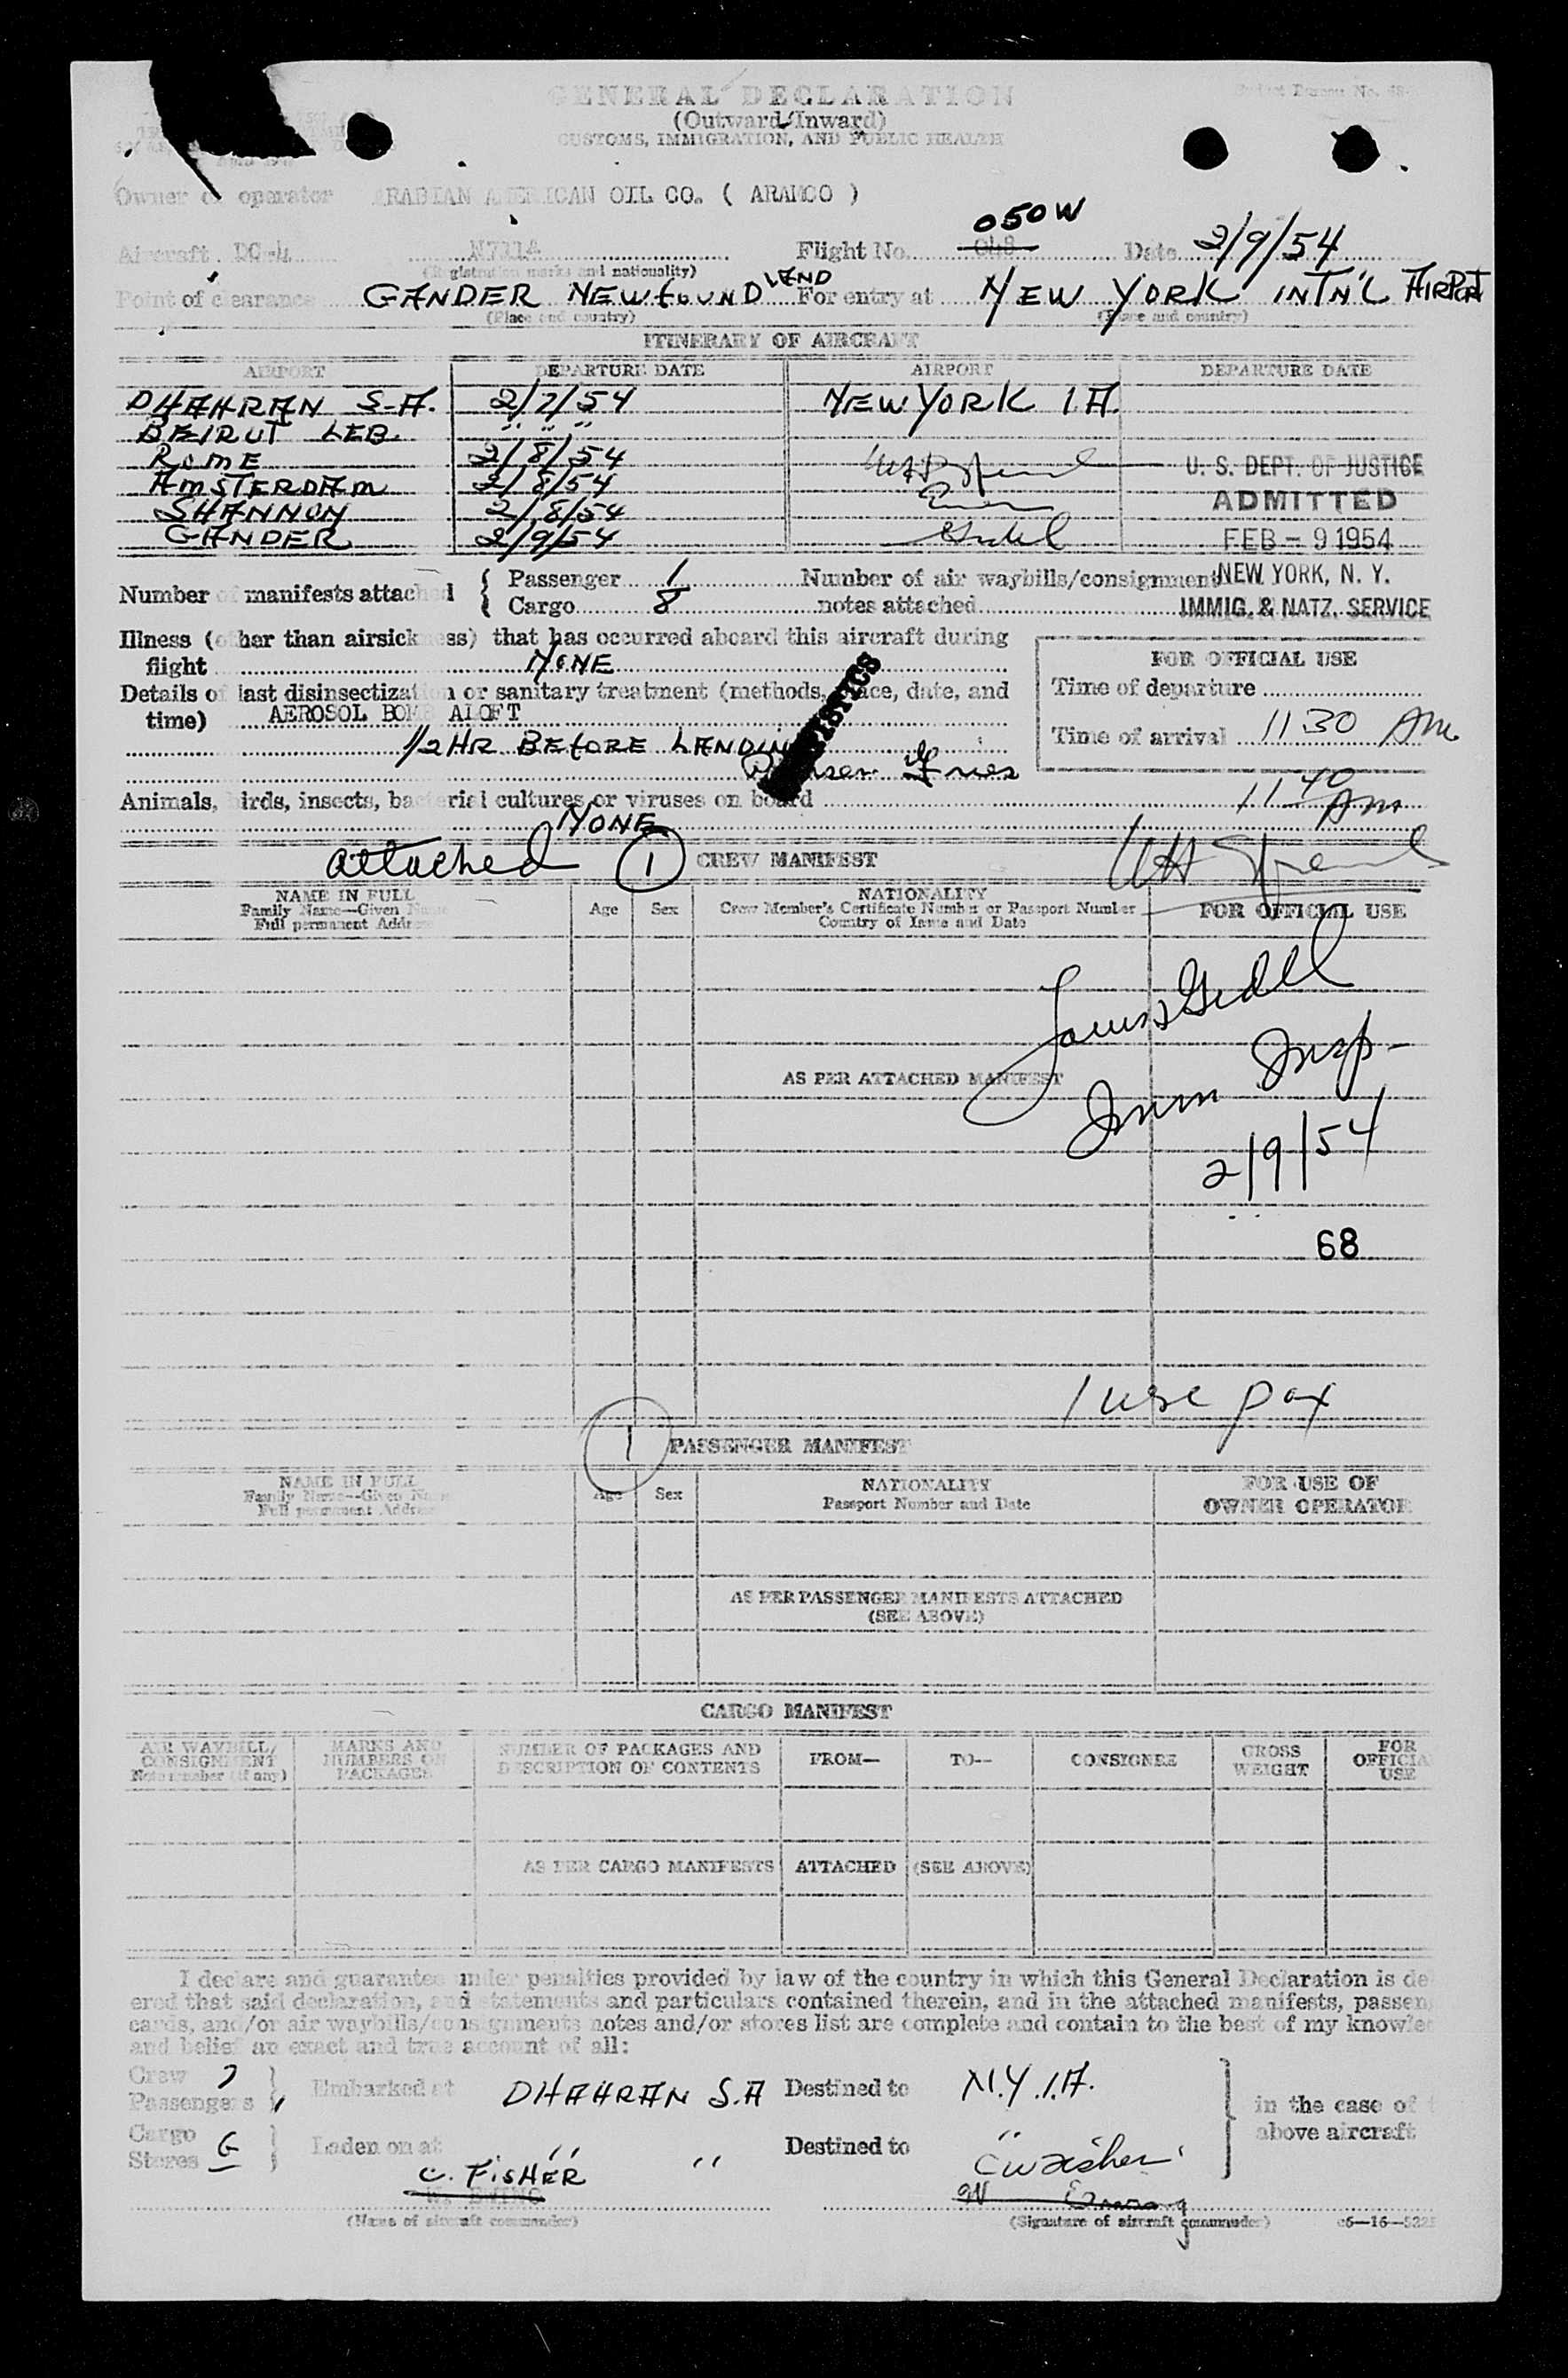 GENERAL DECLARATION
(Outward/Inward)
CUSTOMS, IMMIGRATION, AND PUBLIC HEALTH
Owner or operator ARABIAN AMERICAN OIL CO. ( ARAMCO )
050W
Aircraft DC-4 N711A Flight No. 048 Date 2/9/54
(Registration marks and nationality)
Point of clearance GANDER NEWFOUNDLAND For entry at NEW YORK INTN'L AIRPORT
(Place and country) (Place and country)
ITINERARY OF AIRCRAFT
AIRPORT DEPARTURE DATE AIRPORT DEPARTURE DATE
DHAHRAN S.A. 2/7/54 NEW YORK I.A.
BEIRUT LEB. " " "
ROME 2/8/54 U. S. DEPT. OF JUSTICE
AMSTERDAM 2/8/54 ADMITTED
SHANNON 2/8/54
GANDER 2/9/54 FEB - 9 1954
Number of manifests attached { Passenger 1 Number of air waybills/consignment NEW YORK, N. Y.
Cargo 8 notes attached IMMIG. & NATZ. SERVICE
Illness (other than airsickness) that has occurred aboard this aircraft during
flight NONE
FOR OFFICIAL USE
Details of last disinsectization or sanitary treatment (methods, place, date, and
time) AEROSOL BOMB ALOFT
Time of departure
1/2 HR BEFORE LANDING
Time of arrival 11 30 AM
Animals, birds, insects, bacterial cultures or viruses on board
11 40 AM
NONE
attached 1 CREW MANIFEST
NAME IN FULL Age Sex NATIONALITY FOR OFFICIAL USE
Family Name--Given Name Crew Member's Certificate Number or Passport Number
Full permanent Address Country of Issue and Date
AS PER ATTACHED MANIFEST
Imm Insp-
2/9/54
68
1 usc pax
1 PASSENGER MANIFEST
NAME IN FULL Age Sex NATIONALITY FOR USE OF
Family Name--Given Name Passport Number and Date OWNER OPERATOR
Full permanent Address
AS PER PASSENGER MANIFESTS ATTACHED
(SEE ABOVE)
CARGO MANIFEST
AIR WAYBILL/ MARKS AND NUMBER OF PACKAGES AND FROM— TO-- CONSIGNEE GROSS FOR
CONSIGNMENT NUMBERS ON DESCRIPTION OF CONTENTS WEIGHT OFFICIA
Note number (if any) PACKAGES USE
AS PER CARGO MANIFESTS ATTACHED (SEE ABOVE)
I declare and guarantee under penalties provided by law of the country in which this General Declaration is de
ered that said declaration, and statements and particulars contained therein, and in the attached manifests, passen
cards, and/or air waybills/consignments notes and/or stores list are complete and contain to the best of my knowle
and belief an exact and true account of all:
Crew 7
Passengers 1 } Embarked at DHAHRAN S.A Destined to N.Y.I.A. in the case of t
Cargo above aircraft
Stores G } Laden on at " " Destined to "
C. FISHER
W. EWING
(Name of aircraft commander) (Signature of aircraft commander)